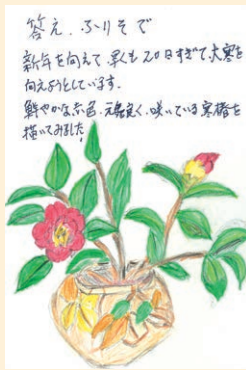 答え.ふりそで
新年を向えて、早くも20日すぎて、大寒を
向えようとしています.
鮮やかな赤色.元気良く.咲いている寒椿を
描いてみました